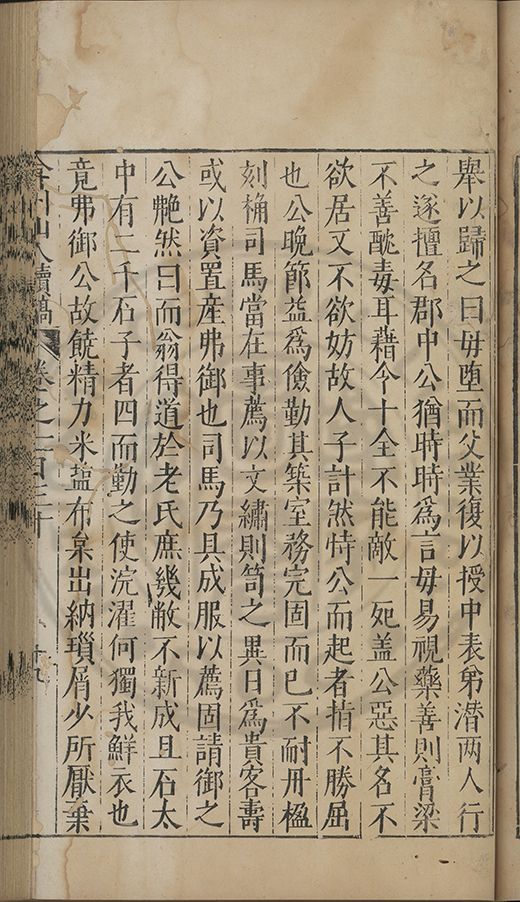 舉以歸之曰毋墮而父業復以授中表弟潛两人行
之遂擅名郡中公猶時時爲言毋易視藥善則膏粱
不善酖毒耳藉令十全不能敵一死盖公惡其名不
欲居又不欲妨故人子計然恃公而起者指不勝屈
也公晩節益爲儉勤其築室務完固而已不耐丹楹
刻桷司馬當在事薦以文繡則笥之異日爲貴客壽
或以資置産弗御也司馬乃具成服以薦固請御之
公艴然曰而翁得道於老氏庶幾敝不新成且石太
中有二千石子者四而勤之使浣濯何獨我鮮衣也
竟弗御公故饒精力米塩布枲出納瑣屑少所厭棄
弇州山人續稿 卷之一百三十